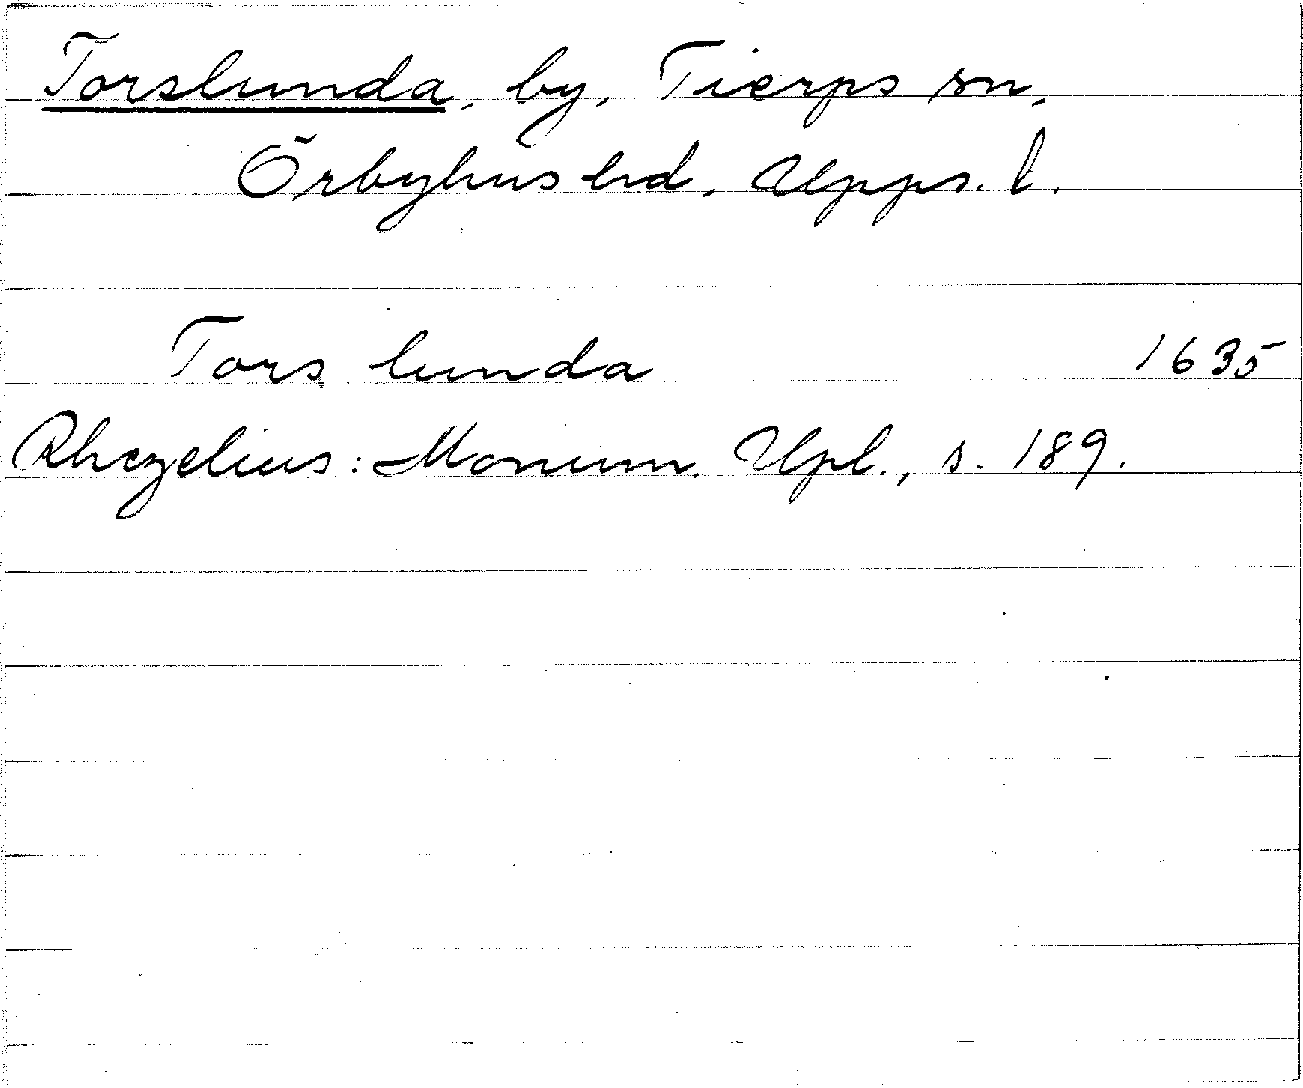 Torslunda, by, Tierps sn,
Örbyhus hd, Upps. l.
Tors lunda 1635
Rhezelius: Monum. Upl., s. 189.